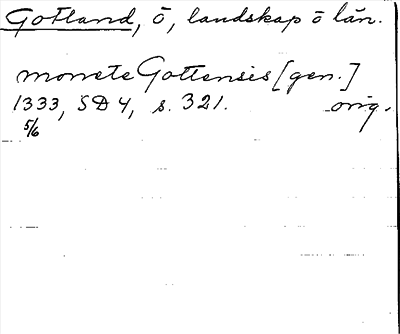 Gotland, ö, landskap ō län.
monete Gottensis [gen.]
1333, SD 4, s. 321. orig.
5/6